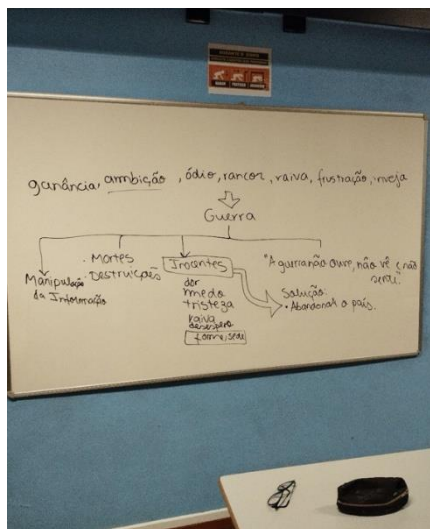 ganância, ambição, ódio, rancor, raiva, frustração, inveja
Guerra
Manipulação
da Informação
· Mortes
· Destruições
Inocentes
dor
medo
tristeza
raiva
desespero
fome, sede
"A guerra não ouve, não vê e não
sente.
Solução:
· Abandonar o país.